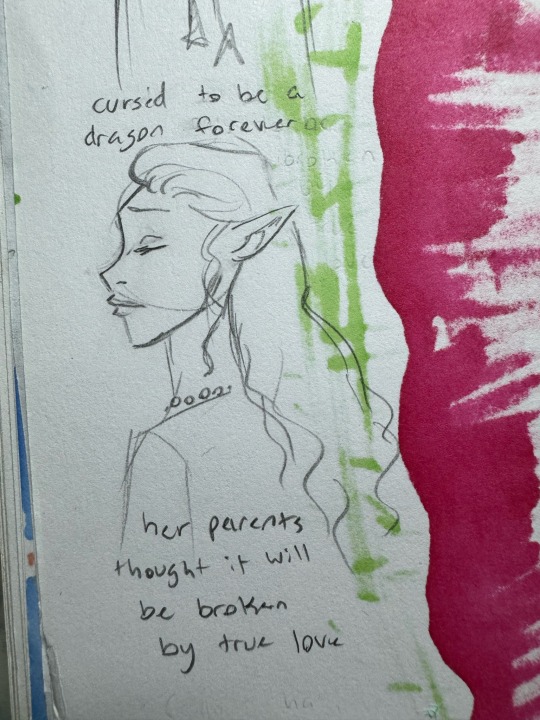 cursed to be a
dragon forever or
broken
her parents
thought it will
be broken
by true love